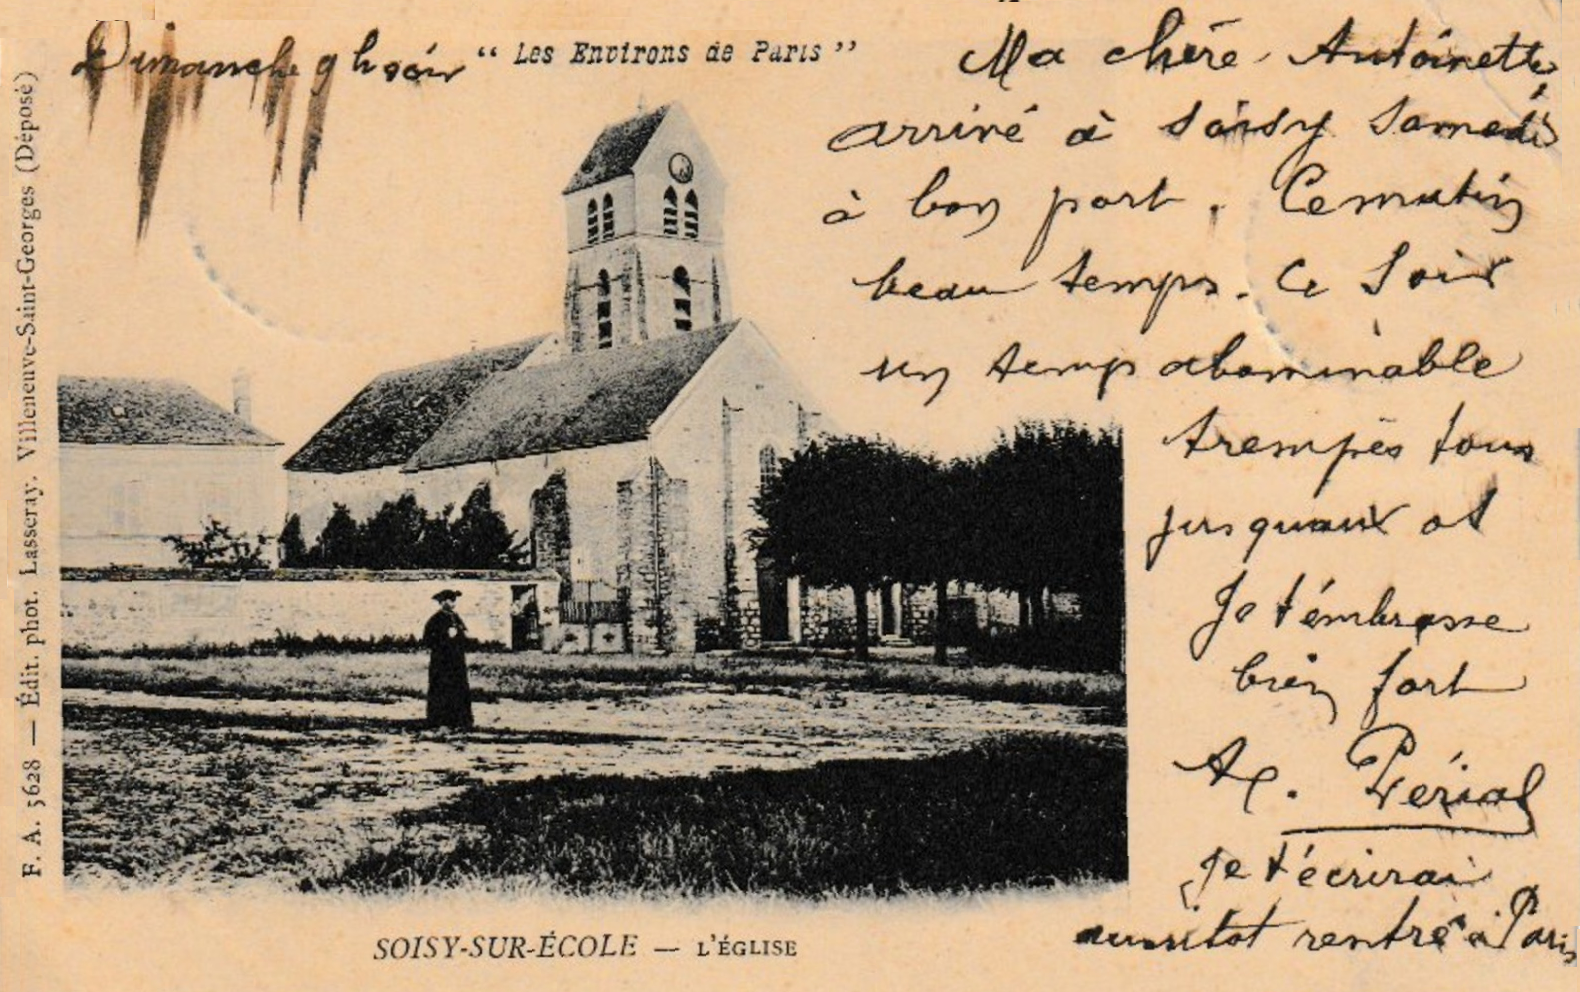 Dimanche 9 h soir
“ Les Environs de Paris ”
Ma chère Antoinette,
arrivé à Soisy Samedi
à bon port. Cematin
beau temps. Ce Soir
un temp abominable
trempés tous
jusquaux os
Je t'émbrasse
bien fort
Je t'écrirai
aussitot rentré à Paris
SOISY-SUR-ÉCOLE — L'ÉGLISE
F. A. 5628 — Édit. phot. Lasseray. Villeneuve-Saint-Georges (Déposé)